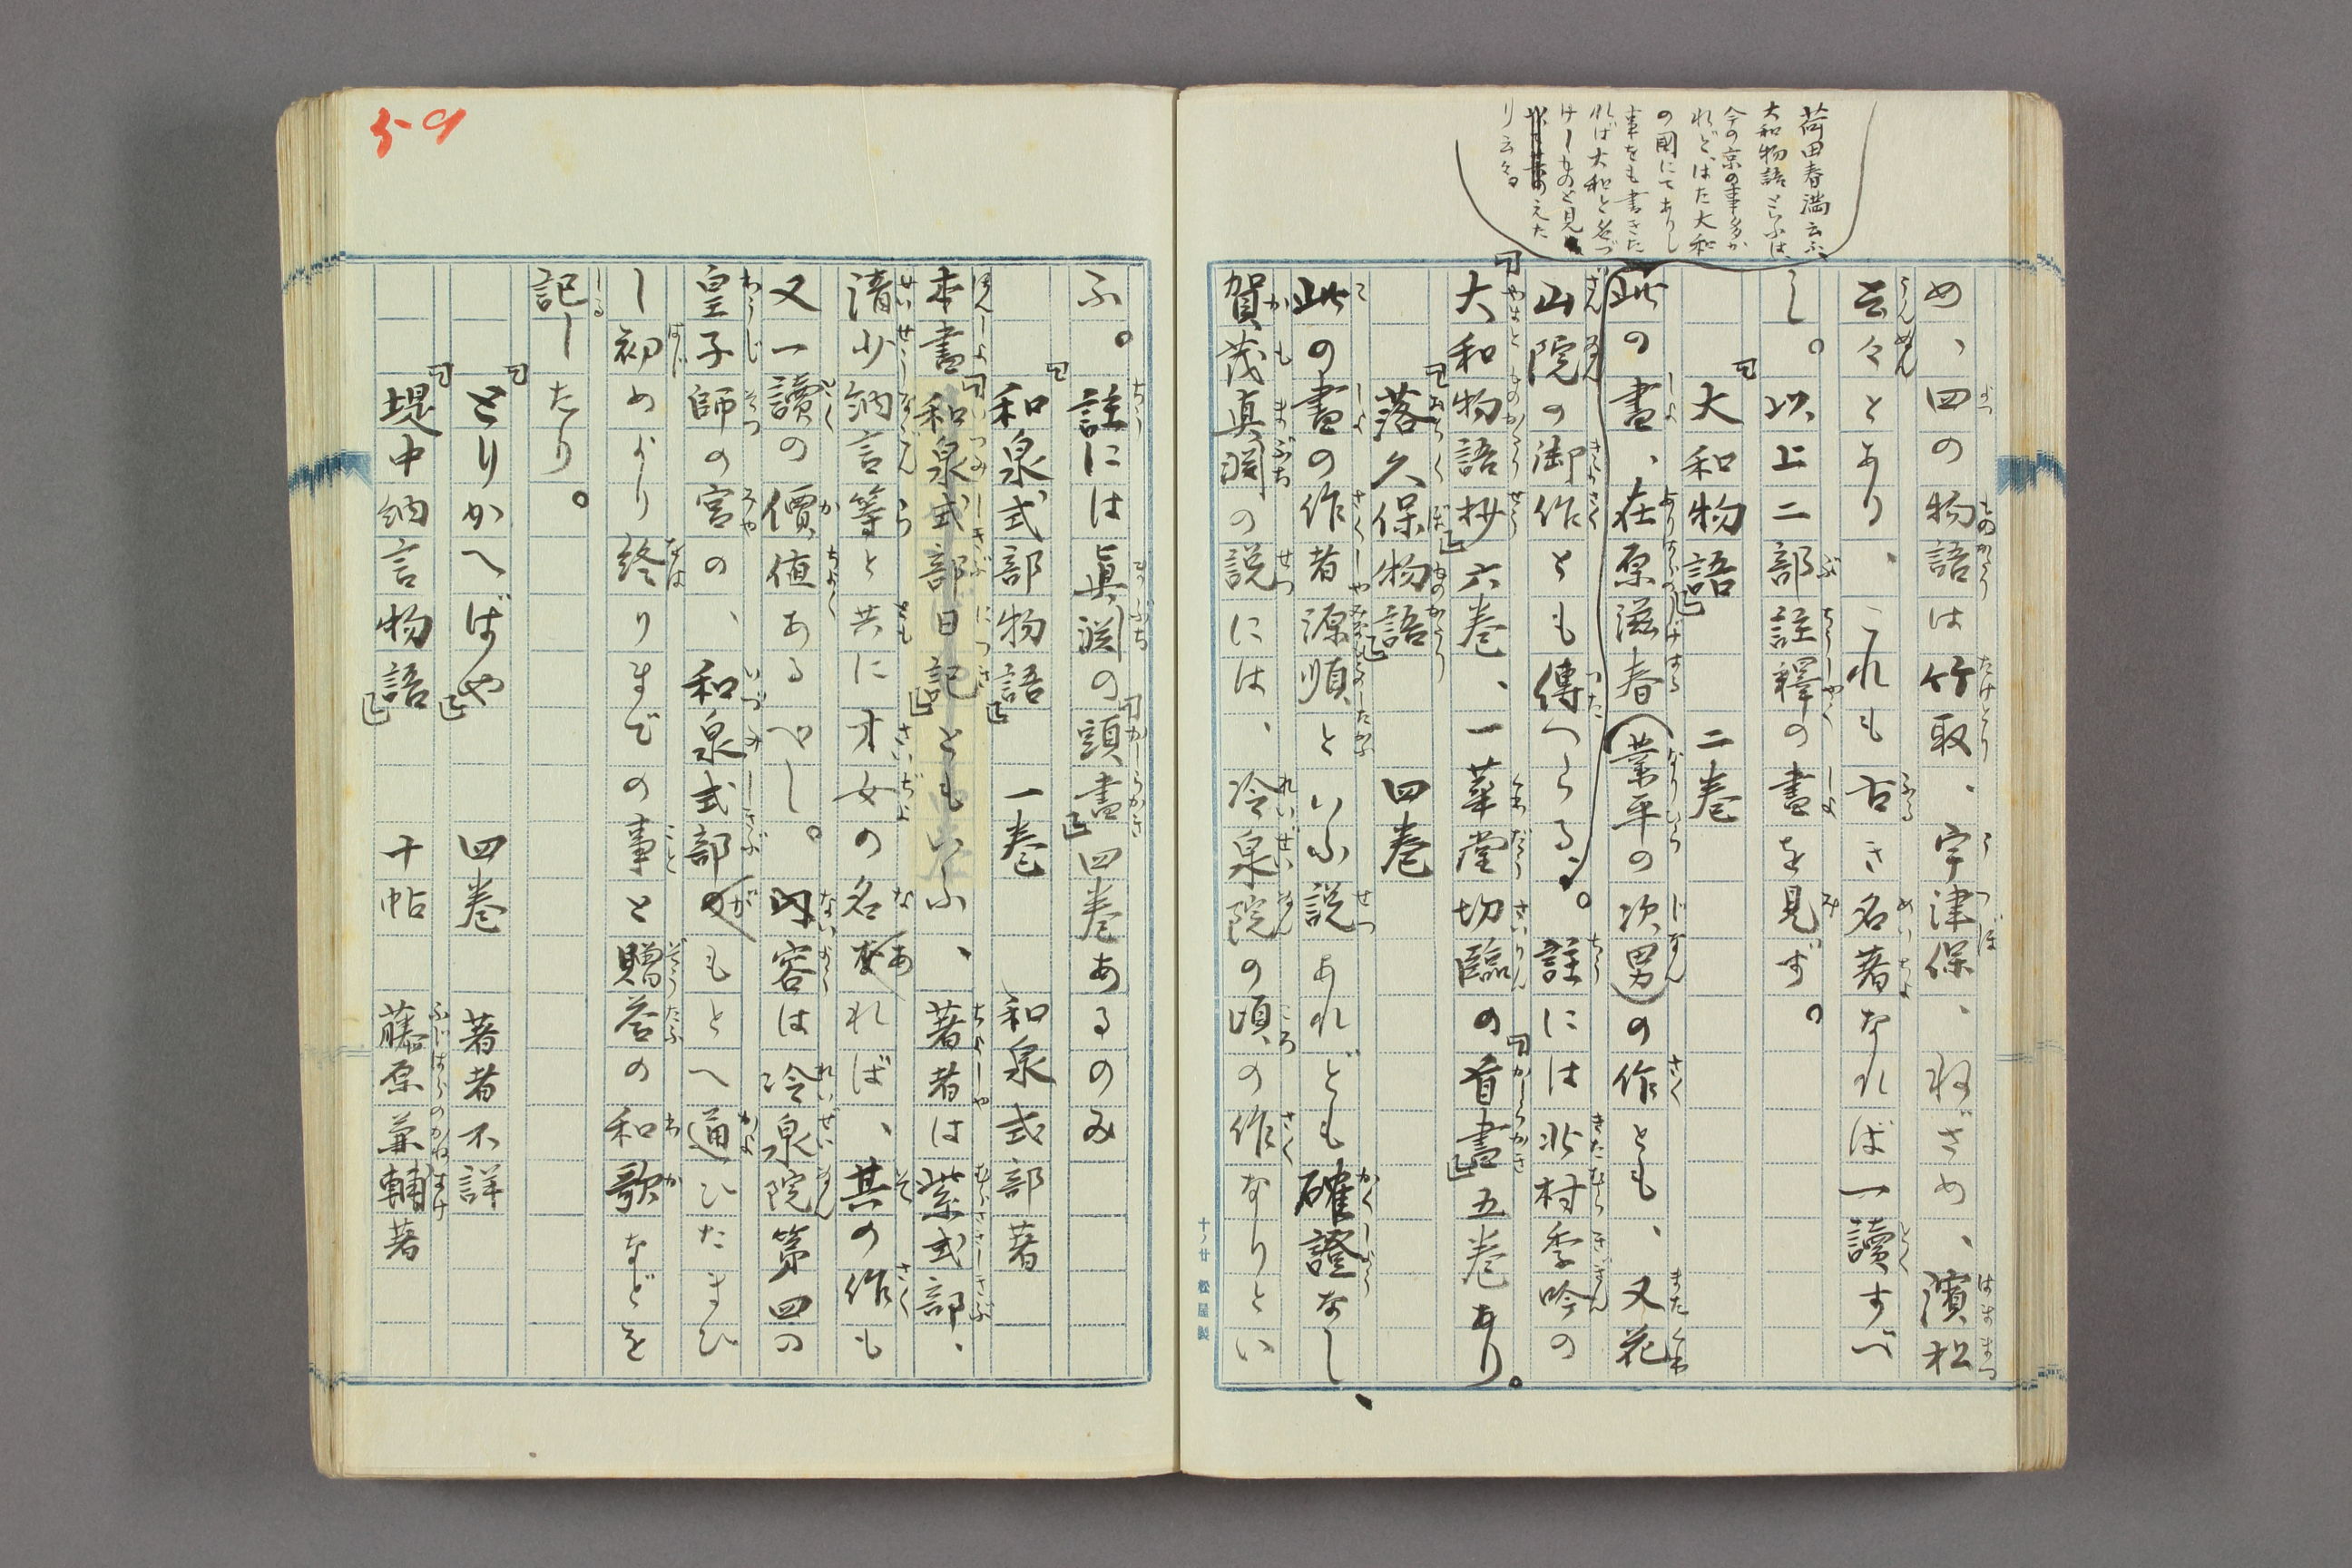 め、四の物語は竹取、宇津保、ねざめ、濱松
云々とあり、これも古き名著なれば一讀すべ
し。以上二部註釋の書を見ず。
「大和物語」　二巻
此の書、在原滋春(業平の次男)の作とも、又花
山院の御作とも傳へらる。註には北村季吟の
「大和物語抄」六巻、一華堂切臨の「首書」五巻あり。
「落久保物語」　四巻
此の書の作者源順といふ説あれども確證なし、
賀茂真渕の説には、冷泉院の頃の作なりとい
荷田春満云ふ、
大和物語といふは
今の京の事多か
れど、はた大和
の國にてありし
事をも書きた
れば大和と名づ
けしものと見
えた
り云々
十ノ廿 松屋製
ふ。註には真渕の「頭書」四巻あるのみ
「和泉式部物語」　一巻　和泉式部著
本書「和泉式部日記」ともいふ、著者は紫式部、
清少納言等と共に才女の名あれば、其の作も
又一讀の價値あるべし。内容は冷泉院第四の
皇子師の宮の、和泉式部がもとへ通ひたまひ
し初めより終りまでの事と贈答の和歌などを
記したり。
「とりかへばや」　四巻　著者不詳
「堤中納言物語」　十帖　藤原兼輔著
59